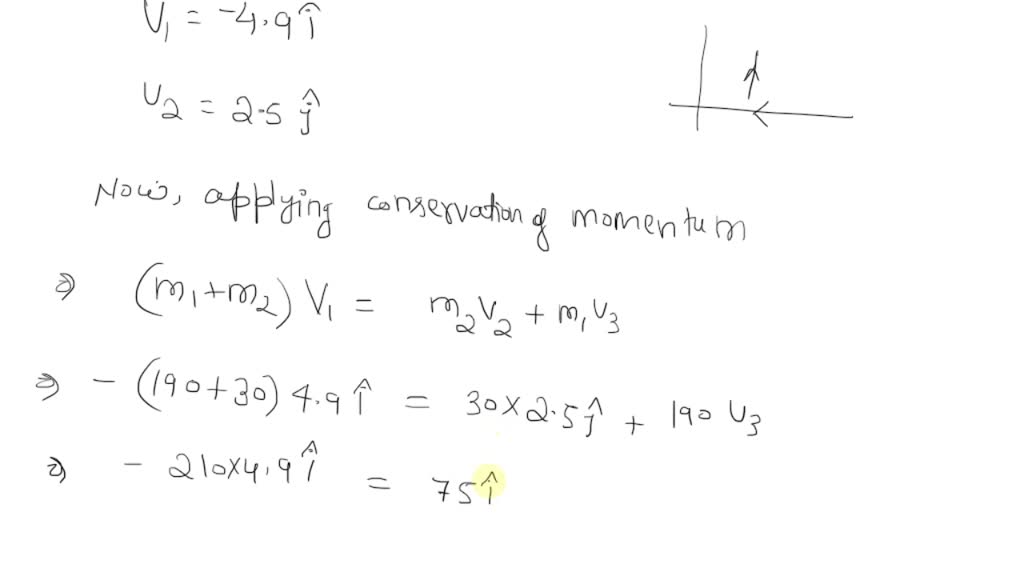 V₁ = -4.9 î
V₂ = 2.5 ĵ
Now, applying conservation of momentum
⇒ (m₁+m₂) V₁ = m₂V₂ + m₁V₃
⇒ - (190+30) 4.9 î = 30×2.5 ĵ + 190 V₃
⇒ - 210×4.9 î = 75 î